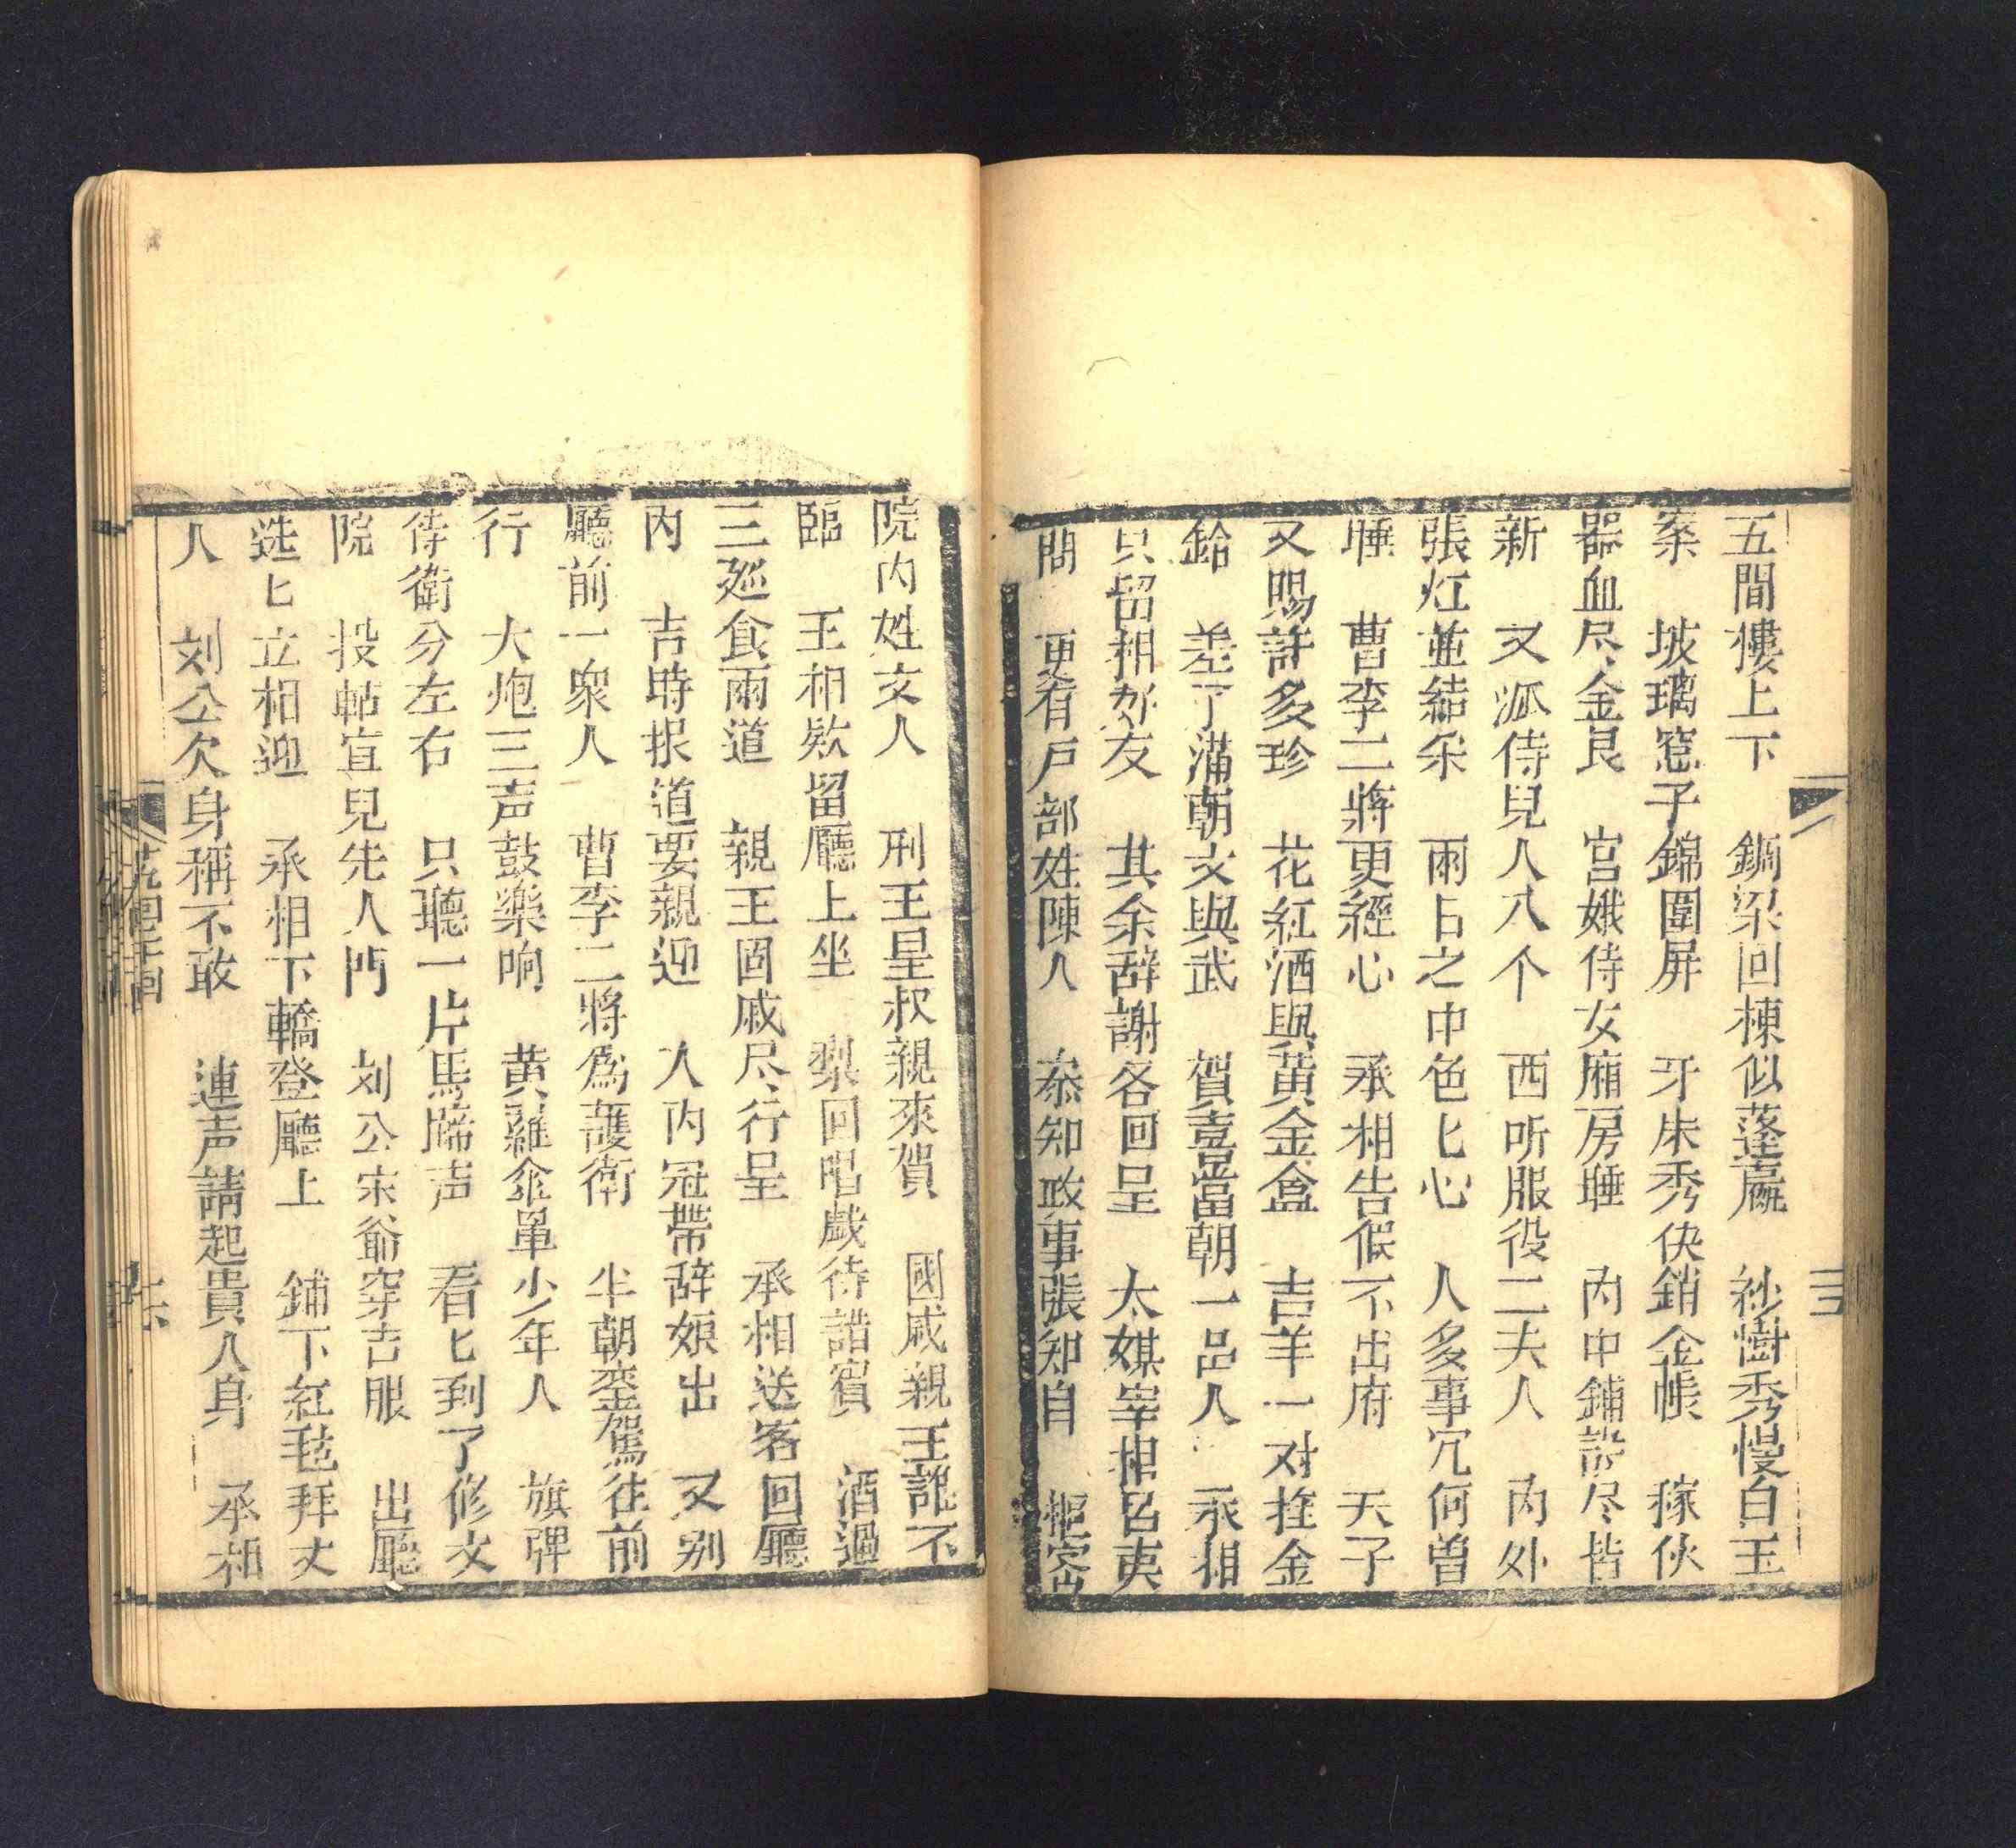 五間樓上下　鋼梁回棟似蓬嬴　秒樹秀慢白玉
案　坡璃窓子錦圍屏　牙床秀伏銷金帳　稼伙
器血尽金艮　宫娥侍女廂房睡　内中鋪設尽皆
新　又派侍兒人八个　西听服役二夫人　内外
張灯並結采　兩占之中色匕心　人多事冗何曽
睡　曹李二將更經心　承相告假不出府　天子
又賜許多珍　花紅酒與黄金盒　吉羊一对拴金
鈴　差了滿朝文與武　賀喜當朝一邑人　承相
只留相好友　其余辞謝各回呈　太媒宰相呂夷
間　更有戸部姓陳人　叅知政事張知自　樞密
院内姓文人　刑王皇叔親來賀　國戚親王說不
臨　王相欵留廳上坐　梨回唱戱待諎賔　酒過
三廵食兩道　親王國戚尽行呈　承相送客回廳
内　吉時报道要親迎　人内冠帶辞娘出　又别
廳前一衆人　曹李二將爲護衛　半朝鑾駕往前
行　大炮三声鼓樂响　黄羅傘單少年人　旗牌
待衛分左右　只聽一片馬蹄声　看匕到了修文
院　投帖宜兒先人門　刘公宋爺穿吉服　出廳
选匕立相迎　承相下轎登廳上　鋪下紅毡拜丈
人　刘公欠身稱不敢　連声請起貴人身　承相